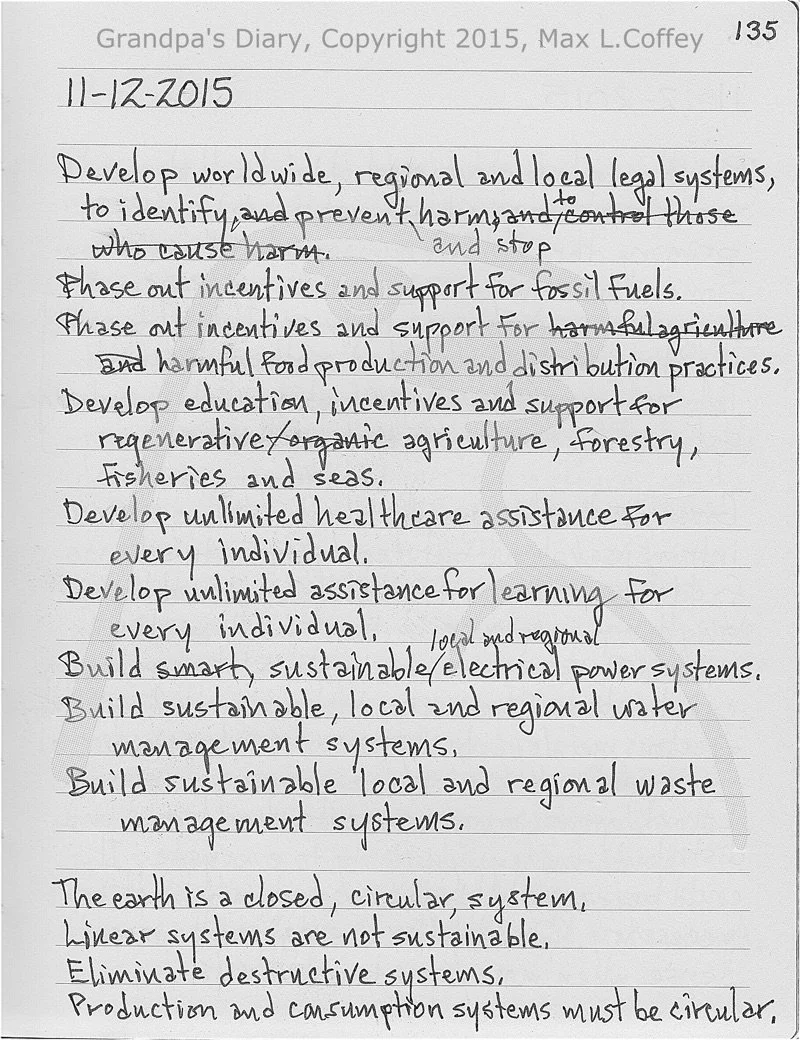 135
Grandpa's Diary, Copyright 2015, Max L.Coffey
11-12-2015
Develop worldwide, regional and local legal systems,
to identify, and prevent, harm, and/to control those
who cause harm. and stop
Phase out incentives and support for fossil fuels.
Phase out incentives and support for harmful agriculture
and harmful food production and distribution practices.
Develop education, incentives and support for
regenerative/organic agriculture, forestry,
fisheries and seas.
Develop unlimited healthcare assistance for
every individual.
Develop unlimited assistance for learning for
every individual.
local and regional
Build smart, sustainable/electrical power systems.
Build sustainable, local and regional water
management systems.
Build sustainable local and regional waste
management systems.
The earth is a closed, circular, system.
Linear systems are not sustainable.
Eliminate destructive systems.
Production and consumption systems must be circular.